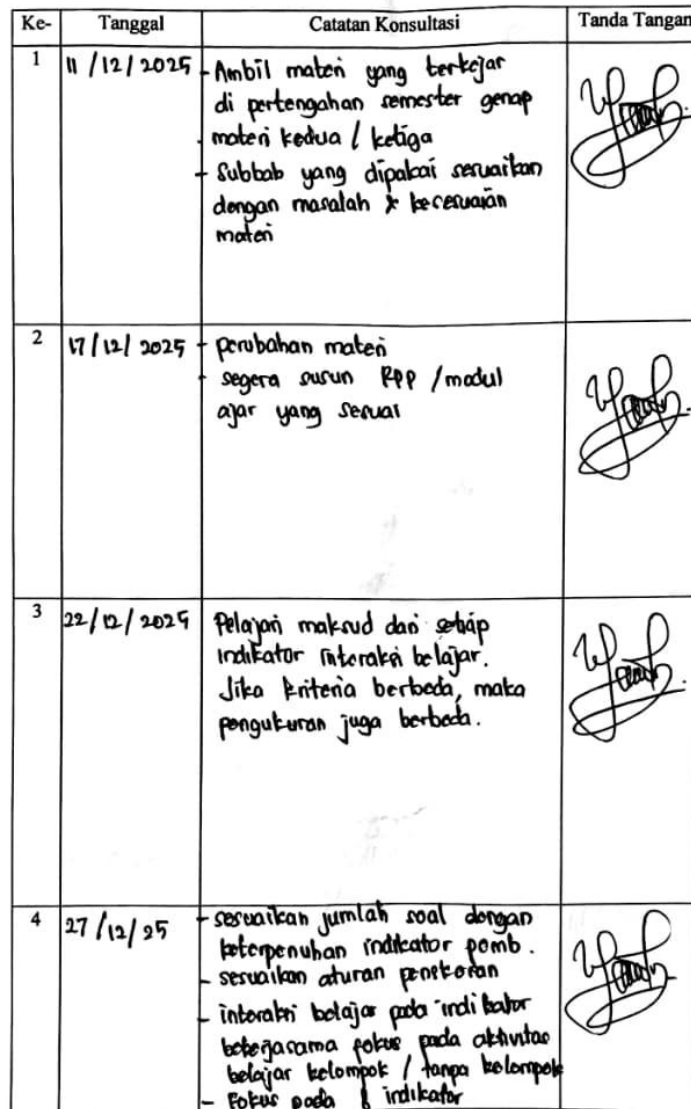 Ke- Tanggal Catatan Konsultasi Tanda Tangan
1 11/12/2025 - Ambil materi yang terkejar
di pertengahan semester genap
- materi kedua / ketiga
- Subbab yang dipakai sesuaikan
dengan masalah & kecesuaian
materi
2 17/12/2025 - perubahan materi
- segera susun RPP /modul
ajar yang sesuai
3 22/12/2025 Pelajari maksud dari setiap
indikator interaksi belajar.
Jika kriteria berbeda, maka
pengukuran juga berbeda.
4 27/12/25 - sesuaikan jumlah soal dengan
keterpenuhan indikator pemb.
- sesuaikan aturan penskoran
- interaksi belajar pada indikator
bekerjasama fokus pada aktivitas
belajar kelompok / tanpa kelompok
- Fokus pada indikator